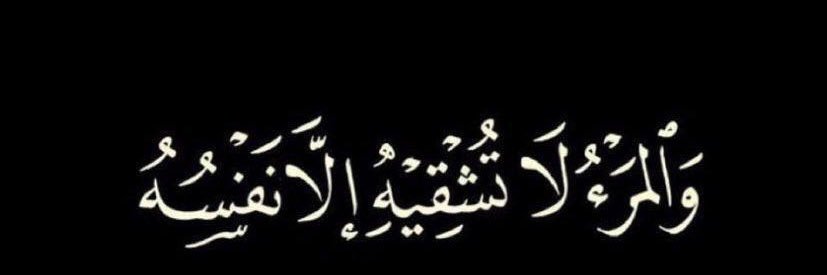 وَٱلْمَرْءُ لَا تُشْقِيْهُ إِلَّا نَفْسُهُ